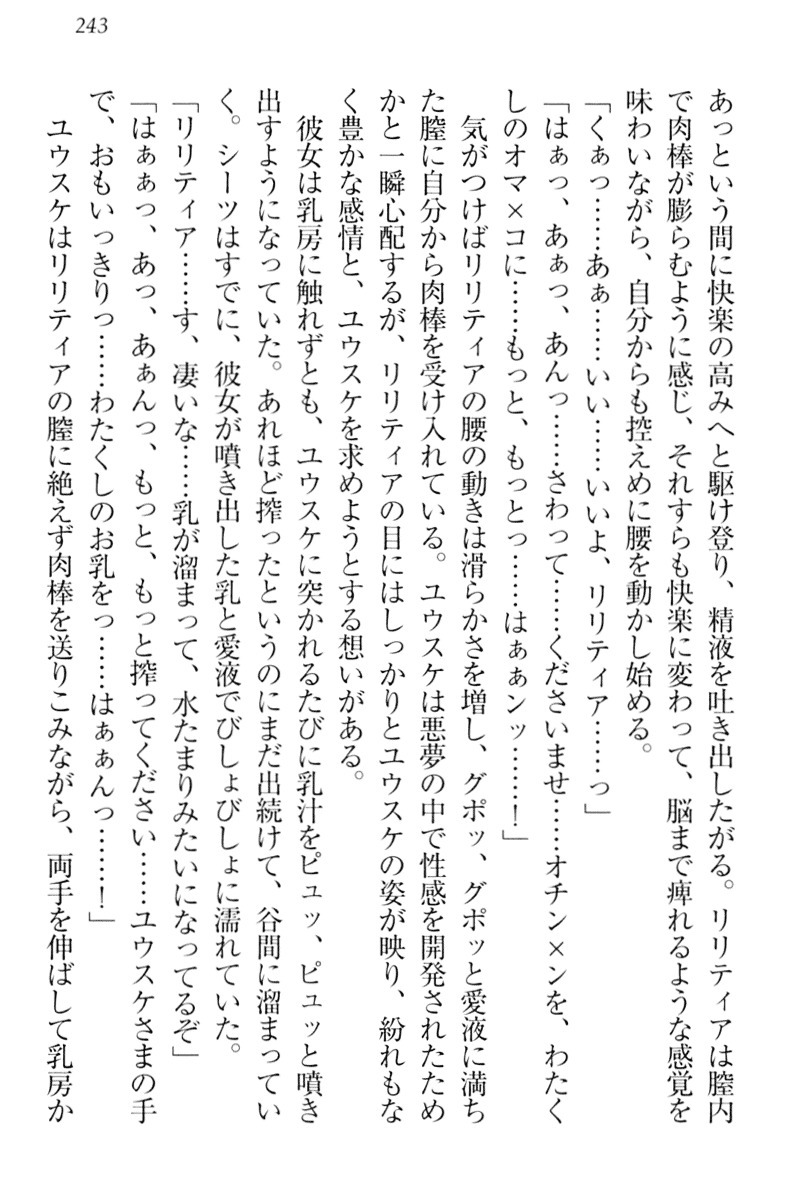 243
あっという間に快楽の高みへと駆け登り、精液を吐き出したがる。リリティアは膣内
で肉棒が膨らむように感じ、それすらも快楽に変わって、脳まで痺れるような感覚を
味わいながら、自分からも控えめに腰を動かし始める。
「くぁっ……あぁ……いい……いいよ、リリティア……っ」
「はぁっ、あぁっ、あんっ……さわって……くださいませ……オチン×ンを、わたく
しのオマ×コに……もっと、もっとっ……はぁぁンッ……！」
気がつけばリリティアの腰の動きは滑らかさを増し、グポッ、グポッと愛液に満ち
た膣に自分から肉棒を受け入れている。ユウスケは悪夢の中で性感を開発されたため
かと一瞬心配するが、リリティアの目にはしっかりとユウスケの姿が映り、紛れもな
く豊かな感情と、ユウスケを求めようとする想いがある。
彼女は乳房に触れずとも、ユウスケに突かれるたびに乳汁をピュッ、ピュッと噴き
出すようになっていた。あれほど搾ったというのにまだ出続けて、谷間に溜まってい
く。シーツはすでに、彼女が噴き出した乳と愛液でびしょびしょに濡れていた。
「リリティア……す、凄いな……乳が溜まって、水たまりみたいになってるぞ」
「はぁぁっ、あっ、あぁんっ、もっと、もっと搾ってください……ユウスケさまの手
で、おもいっきりっ……わたくしのお乳をっ……はぁぁんっ……！」
ユウスケはリリティアの膣に絶えず肉棒を送りこみながら、両手を伸ばして乳房か